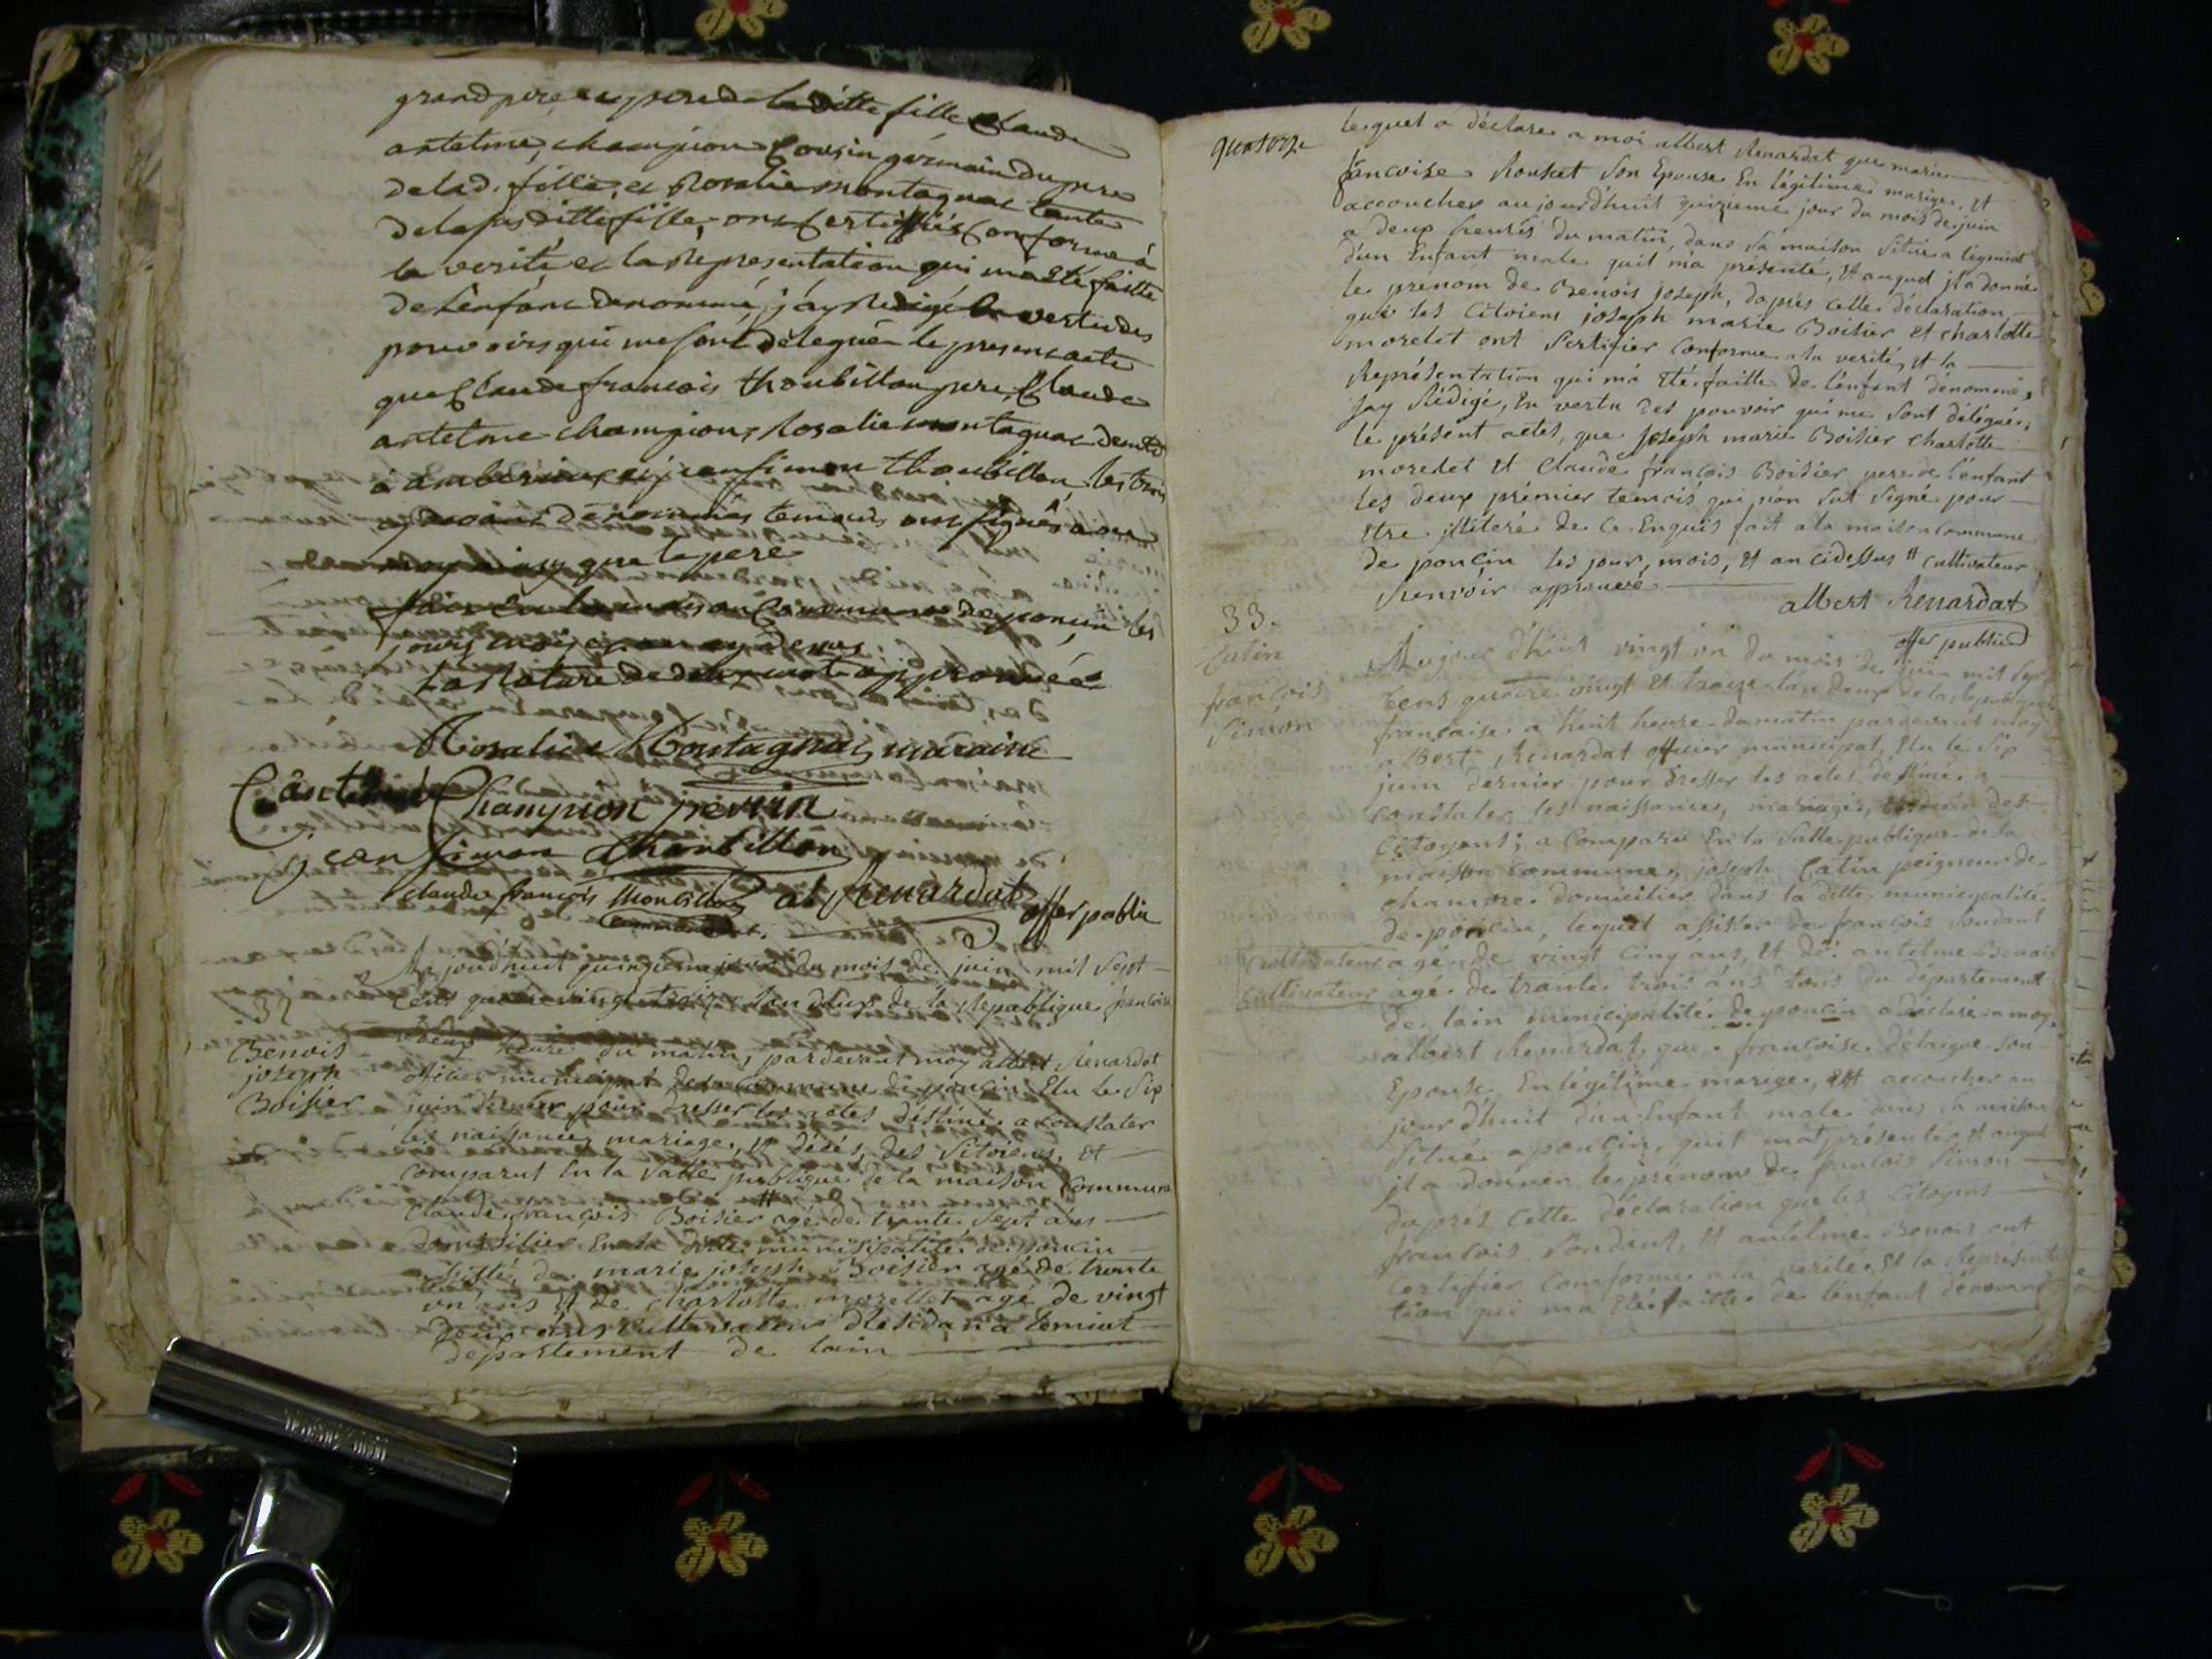 grandpere, et pere de la ditte fille Claude
antelme, champion Cousin germain du pere
de lad. fille, et Rosalie montagnat tante
de la susditte fille, ont Certiffiés Conforme à
la verité et la Representation qui m'a Eté faitte
de L'enfant denommé, j'ay Redigé En vertu des
pouvoirs qui me sont delegués le present acte
que Claude francois thoubillon pere, Claude
antelme champion, Rosalie montagnat
à amberieux, et jean simon thoubillon, les trois
denommés temoins ont signés avec
moy ainsy que le pere
fait En la maison Commune de poncin, les
jours, mois, et an cy dessus
La Rature de mots approuvée
Rosalie Montagnat maraine
Champion perrin
jean Simon thoubillon
claude françois thoubillon al Renardat offer public
Au jourdhuit quinzieme jour du mois de juin mil Sept
Cens quatre vingt treize l'an deux de la Republique françoise
32
a deux heure du matin, pardevant moy albert Renardat
Benois
joseph
Boisier
officier municipal de la Commune de poncin, Elu le Six
juin dernier pour dresser les actes déstinés a Constater
les naissances, mariage, et décés, des Sitoiens, et
comparut En la Salle publique de la maison Commune
Claude françois Boisier agé de trante Sept ans
domisilier En la ditte munisipalité de poncin
assisté de marie joseph Boisier agé de trante
un ans et de charlotte morellet agé de vingt
deux ans
departement de lain
quatorze
lequel a déclarer a moi albert Renardat que marie
françoise Rousset Son Epouse En légitime mariges, et
accoucher aujourdhuit quinzieme jour du mois de juin
a deux heures du matin, dans Sa maison Située a
d'un Enfant male quil m'a présenté, Et auquel jl a donné
le prenom de Benois joseph, daprés cette déclaration
que les Citoiens joseph marie Boisier et charlotte
morelet ont Sertifier Conforme a la verité, et la
Représentation qui m'a Eté faitte de lénfant dénommé,
Jay Rédigé, En vertu des pouvoir qui me Sont délégués,
le présent actes, que joseph marie Boisier charlotte
morelet et Claude françois Boisier pere de l'enfant
les deux prémier temois qui non Sut Signé pour
Etre jlliteré de Ce Enquis fait a la maison Commune
de poncin les jour, mois, et an cidessus # cultivateur
Renvoir approuvé
albert Renardat
offer public
33.
Catin
françois
Simon
Aujour d'huit vingt un du mois de juin mil Sept
Cens quatre vingt et treize lan deux de la Republique
française a huit heure du matin pardevant moy
albert Renardat officier municipal, Elu le Six
juin dernier pour dresser les actes déstinés a
constater les naissances, mariages, et décés des
Citoyens; a Comparu En la Salle publique de la
maison Commune, joseph Catin peigneur de
chanvre domicilier dans la ditte municipalité
de poncin, lequel assister de françois Sondant
cultivateur agé de vingt Cinq ans, Et de antelme Benois
cultivateur agé de trante trois ans tous du département
de lain municipalité de poncin a déclaré a moy
albert Renardat, que françoise Son
Epouse En légitime mariges, est accoucher au
jourdhuit dun Enfant male dans Sa maison
Située a poncin, quil m'at présenter, Et auquel
jl a donner le prénom de francois Simon
daprés Cette déclaration que les Citoyens
francois Sondant, Et antelme Benois ont
Certifier Comforme a la verité, Et la Représenta
tion qui m'a Eté faitte de lénfant dénommé